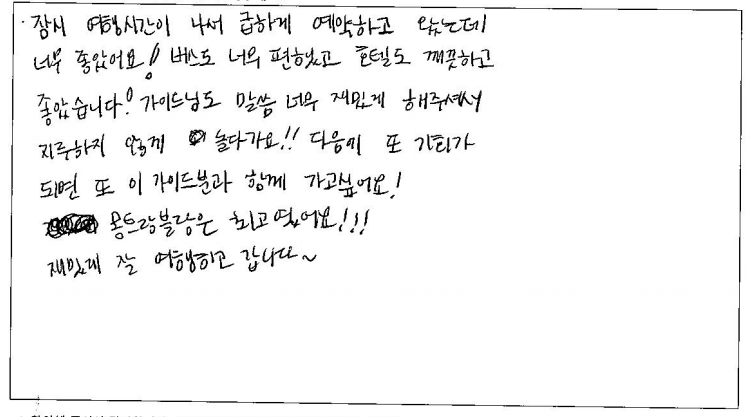 · 잠시 여행시간이 나서 급하게 예약하고 왔는데
너무 좋았어요! 버스도 너무 편했고 호텔도 깨끗하고
좋았습니다! 가이드님도 말씀 너무 재밌게 해주셔서
지루하지 않게 놀다가요!! 다음에 또 기회가
되면 또 이 가이드분과 함께 가고싶어요!
몽트랑블랑은 최고였어요!!!
재밌게 잘 여행하고 갑니다~